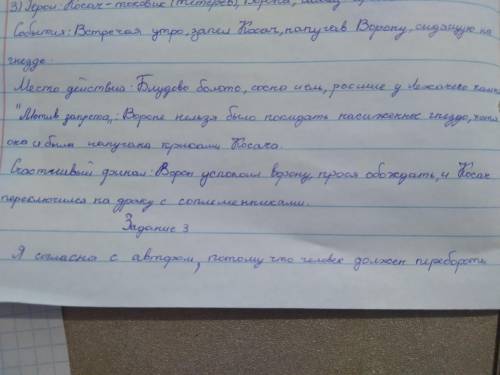 3) Герои: Косач-токовик (тетерев), Ворона,
События: Встречая утро, запел Косач, напугав Ворону, сидящую на
гнезде.
Место действия: Блудово болото, сосна и ель, росшие у Лежачего камня
"Мотив запрета": Вороне нельзя было покидать насиженное гнездо, хотя
она и была напугана криками Косача.
Счастливый финал: Ворон успокоил ворону, прося обождать, и Косач
переключился на драку с соплеменниками.
Задание 3
Я согласна с автором, потому что человек должен перебороть